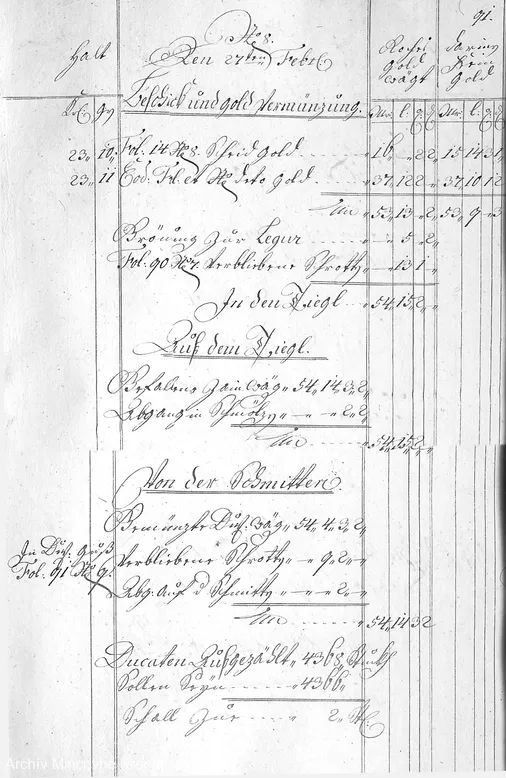 91.
No 8.
Den 27ten Febr
Halt
Roches gold wägt
darinn fein gold
Beschick und gold Vermünzung.
Kr. gr
Mr. l. q d Mr. l. q d
23 10 Fol: 14 No 8. Scheidgold 16 " 22 15 14 3 1
23 11 Eod: Fol et No detto gold 37 12 2 37 10 1 2
53 13 2 53 9 3
zur Legur 5 2
Fol: 90 No 7. Verbliebene Schrotty 13 1
In den Tiegl 54 15 2
Auß dem Tiegl.
Gefallene Zain wäg 54 14 3 2
Abgang in Schmölzn 2 2
54 15 2
Von der Schmitten
Gemünzte Duc. wäg 54 4 3 2
In Duc. guß
Fol. 91 No 9.
Verbliebene Schrotty 9 2
Abg: Auf d Schmitty 2
54 14 3 2
Ducaten Aufgezählt 4368 Stukh
Sollen Seyn 4366
Schall Zue 2 St
Archiv Münzbe